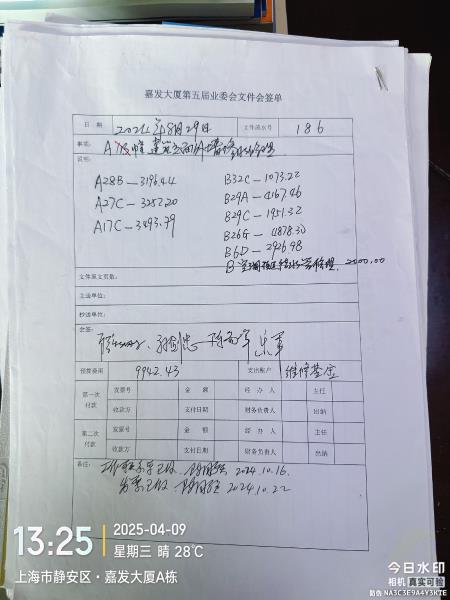 嘉发大厦第五届业委会文件会签单
日 期 2024年8月29日 文件流水号 186
事项: A
说明:
A28B—3196.44 B32C—1073.22
A27C—3252.20 B29A—4167.46
A17C—3493.79 B29C—1951.32
B26G—4878.30
B6D—2926.98
B 2000.00
文件原文页数:
主送单位:
抄送单位:
会签:
预算费用 9942.43 支出账户 维修基金
第一次付款 发票号 金 额 经 办 人 主任
收款方 支付日期 财务负责人 出纳
第二次付款 发票号 金 额 经 办 人 主任
收款方 支付日期 财务负责人 出纳
备注: 2024.10.16.
发票已收 2024.10.22
13:25 2025-04-09
星期三 晴 28℃
上海市静安区·嘉发大厦A栋
今日水印
相机 真实可验
防伪 NA3C3E9A4Y3KTE